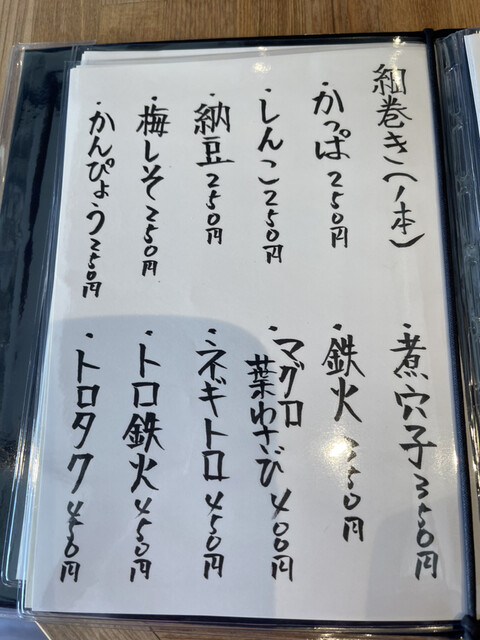 細巻き(1本)
・かっぱ250円
・しんこ250円
・納豆250円
・梅しそ250円
・かんぴょう250円
・煮穴子350円
・鉄火
・マグロ
葉わさび400円
・ネギトロ450円
・トロ鉄火450円
・トロタク450円